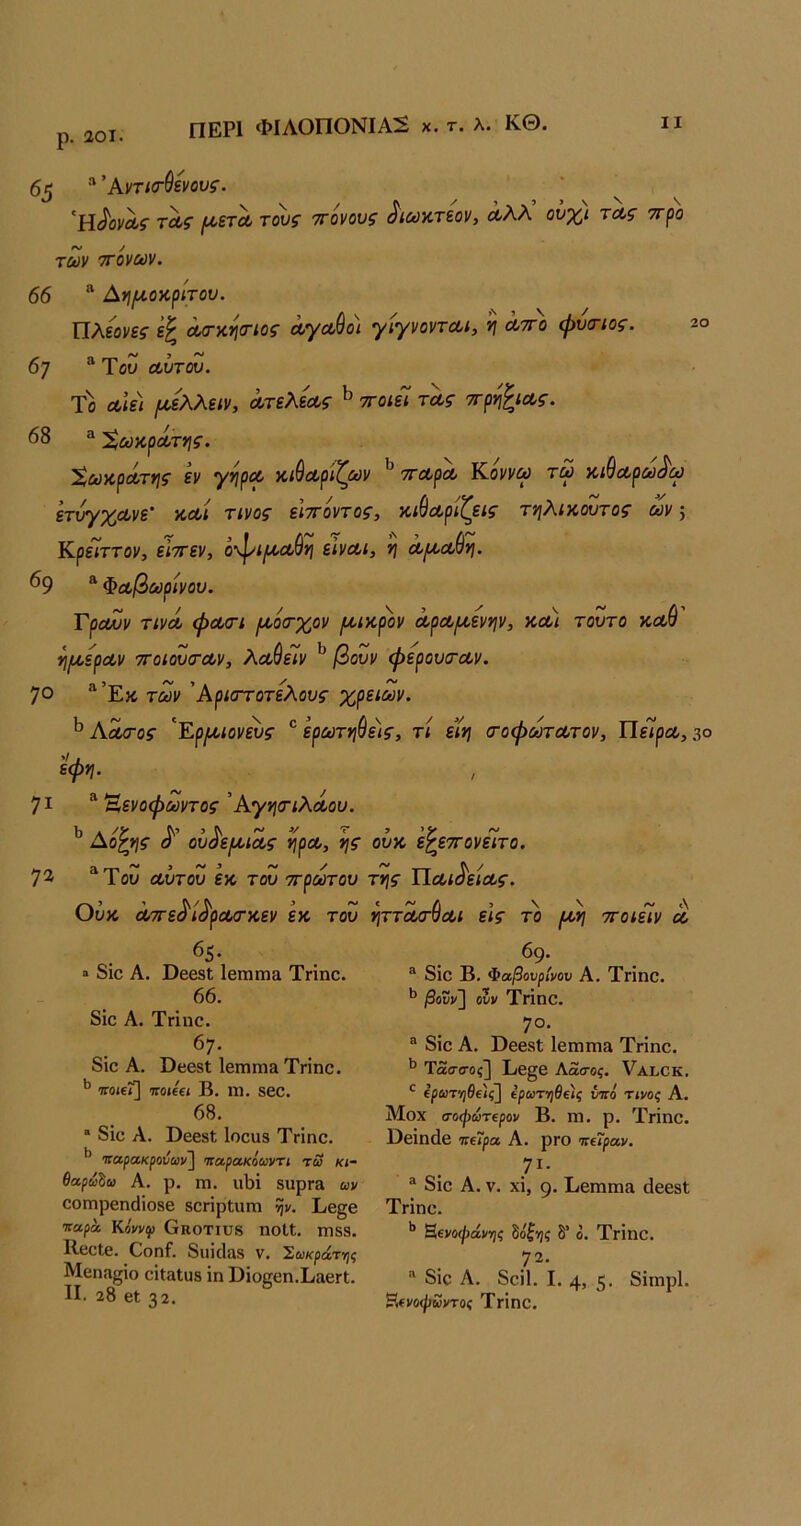 p. 201.
ΠΕΡΙ ΦΙΛΟΠΟΝΙΑΣ κ. τ. λ. ΚΘ.
11
65 a Ἀντισθένους.
Ἡδονὰς τὰς μετὰ τοὺς πόνους διωκτέον, ἀλλ’ οὐχὶ τὰς πρὸ
τῶν πόνων.
66 a Δημοκρίτου.
Πλέονες ἐξ ἀσκήσιος ἀγαθοὶ γίγνονται, ἢ ἀπὸ φύσιος. 20
67 a Τοῦ αὐτοῦ.
Τὸ αἰεὶ μέλλειν, ἀτελέας b ποιεῖ τὰς πρήξιας.
68 a Σωκράτης.
Σωκράτης ἐν γήρᾳ κιθαρίζων b παρὰ Κόννῳ τῷ κιθαρωδῷ
ἐτύγχανε· καί τινος εἰπόντος, κιθαρίζεις τηλικοῦτος ὤν;
Κρεῖττον, εἶπεν, ὀψιμαθῆ εἶναι, ἢ ἀμαθῆ.
69 a Φαβωρίνου.
Γραῦν τινά φασι μόσχον μικρὸν ἀραμένην, καὶ τοῦτο καθ’
ἡμέραν ποιοῦσαν, λαθεῖν b βοῦν φέρουσαν.
70 a Ἐκ τῶν Ἀριστοτέλους χρειῶν.
b Λᾶσος Ἑρμιονεὺς c ἐρωτηθεὶς, τί εἴη σοφώτατον, Πεῖρα, 30
ἔφη.
71 a Ξενοφῶντος Ἀγησιλάου.
b Δόξης δ’ οὐδεμιᾶς ἤρα, ἧς οὐκ ἐξεπονεῖτο.
72 a Τοῦ αὐτοῦ ἐκ τοῦ πρώτου τῆς Παιδείας.
Οὐκ ἀπεδίδρασκεν ἐκ τοῦ ἡττᾶσθαι εἰς τὸ μὴ ποιεῖν ἃ
65.
a Sic A. Deest lemma Trinc.
66.
Sic A. Trinc.
67.
Sic A. Deest lemma Trinc.
b ποιεῖ] ποιέει B. m. sec.
68.
a Sic A. Deest locus Trinc.
b παρακρούων] παρακόωντι τῶ κι-
θαρῴδω A. p. m. ubi supra ων
compendiose scriptum ην. Lege
παρὰ Κόννῳ GROTIUS nott. mss.
Recte. Conf. Suidas v. Σωκράτης
Menagio citatus in Diogen.Laert.
II. 28 et 32.
69.
a Sic B. Φαβουρίνου A. Trinc.
b βοῦν] οὖν Trinc.
70.
a Sic A. Deest lemma Trinc.
b Τᾶσσος] Lege Λᾶσος. VALCK.
c ἐρωτηθεὶς] ἐρωτηθεὶς ὑπό τινος A.
Mox σοφώτερον B. m. p. Trinc.
Deinde πεῖρα A. pro πεῖραν.
71.
a Sic A. v. xi, 9. Lemma deest
Trinc.
b Ξενοφάνης δόξης δ’ ὁ. Trinc.
72.
a Sic A. Scil. I. 4, 5. Simpl.
Ξενοφῶντος Trinc.